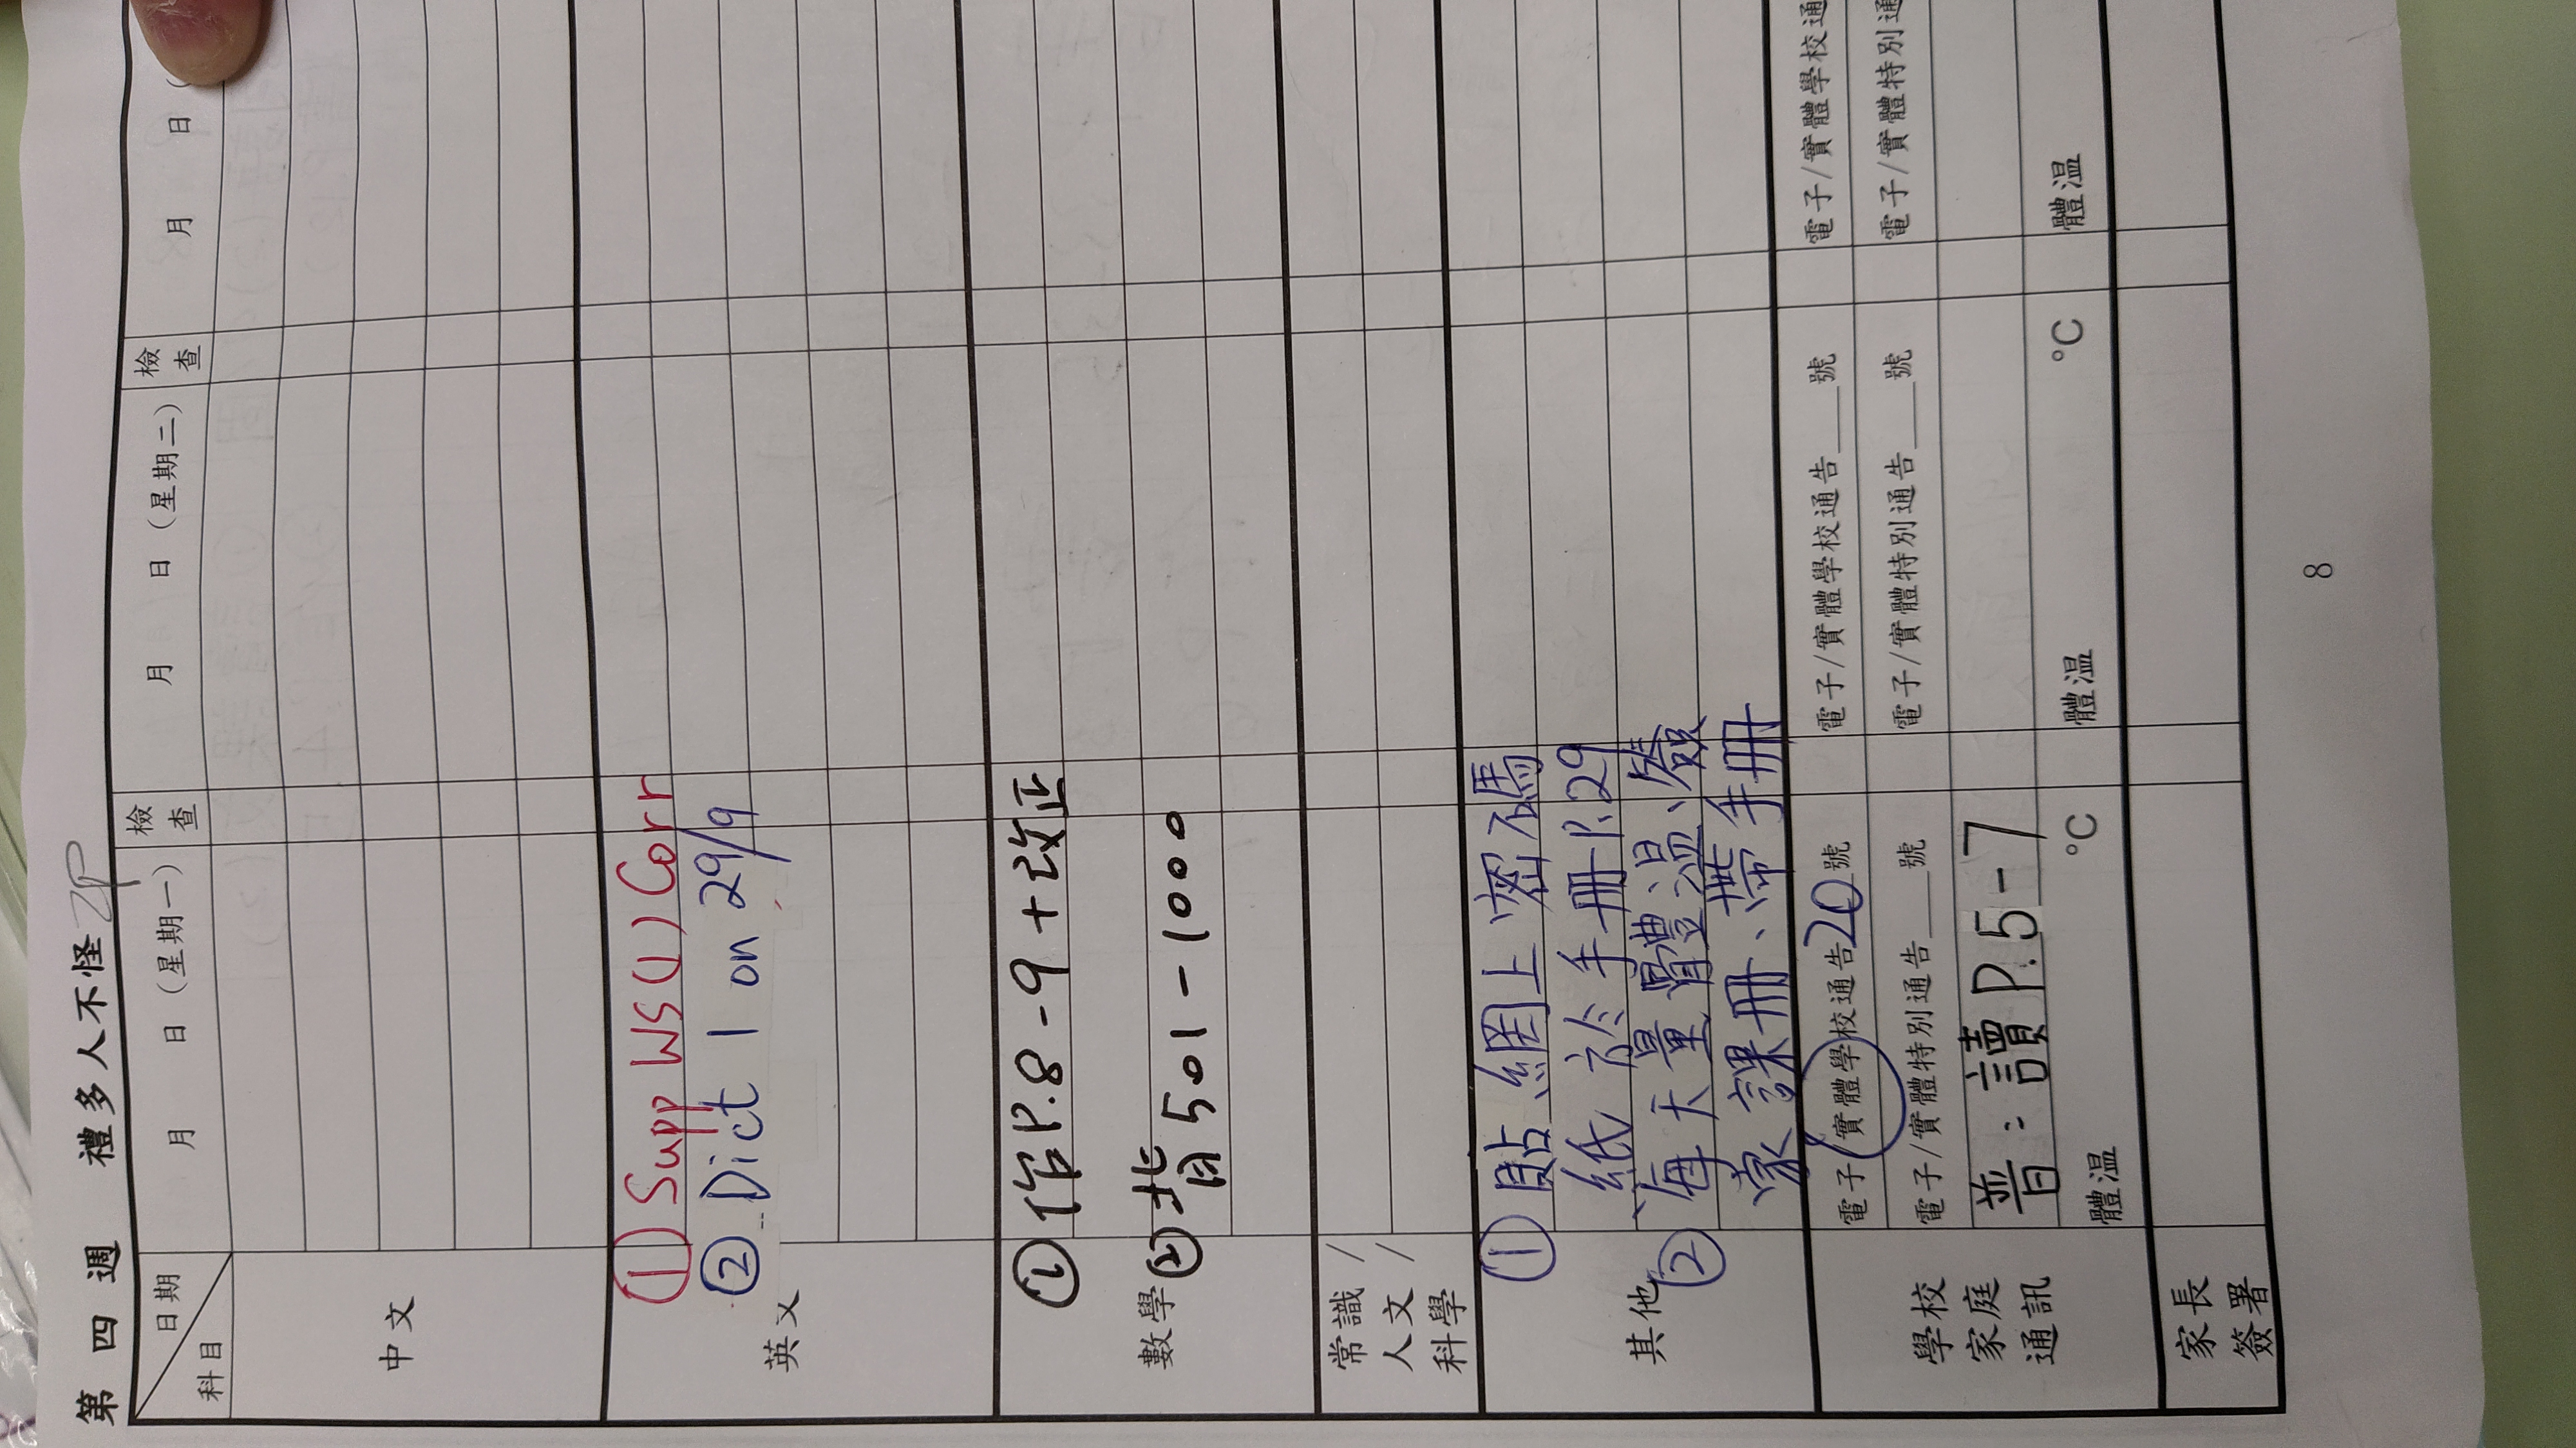 第四週 禮多人不怪 2P
日期 科目 月 日（星期一） 檢查 月 日（星期二） 檢查 月 日（
中文
英文 ① Supp WS(1) Corr
② Dict 1 on 29/9
數學 ① 作P.8-9+改正
② 背501-1000
常識/人文/科學
其他 ① 貼網上密碼
紙於手冊P.29
② 每天量體溫、簽
家課冊、帶手冊
學校家庭通訊 電子/實體學校通告20號 電子/實體學校通告___號 電子/實體學校通
電子/實體特別通告___號 電子/實體特別通告___號 電子/實體特別通
普：讀P.5-7
體溫 °C 體溫 °C 體溫
家長簽署
8